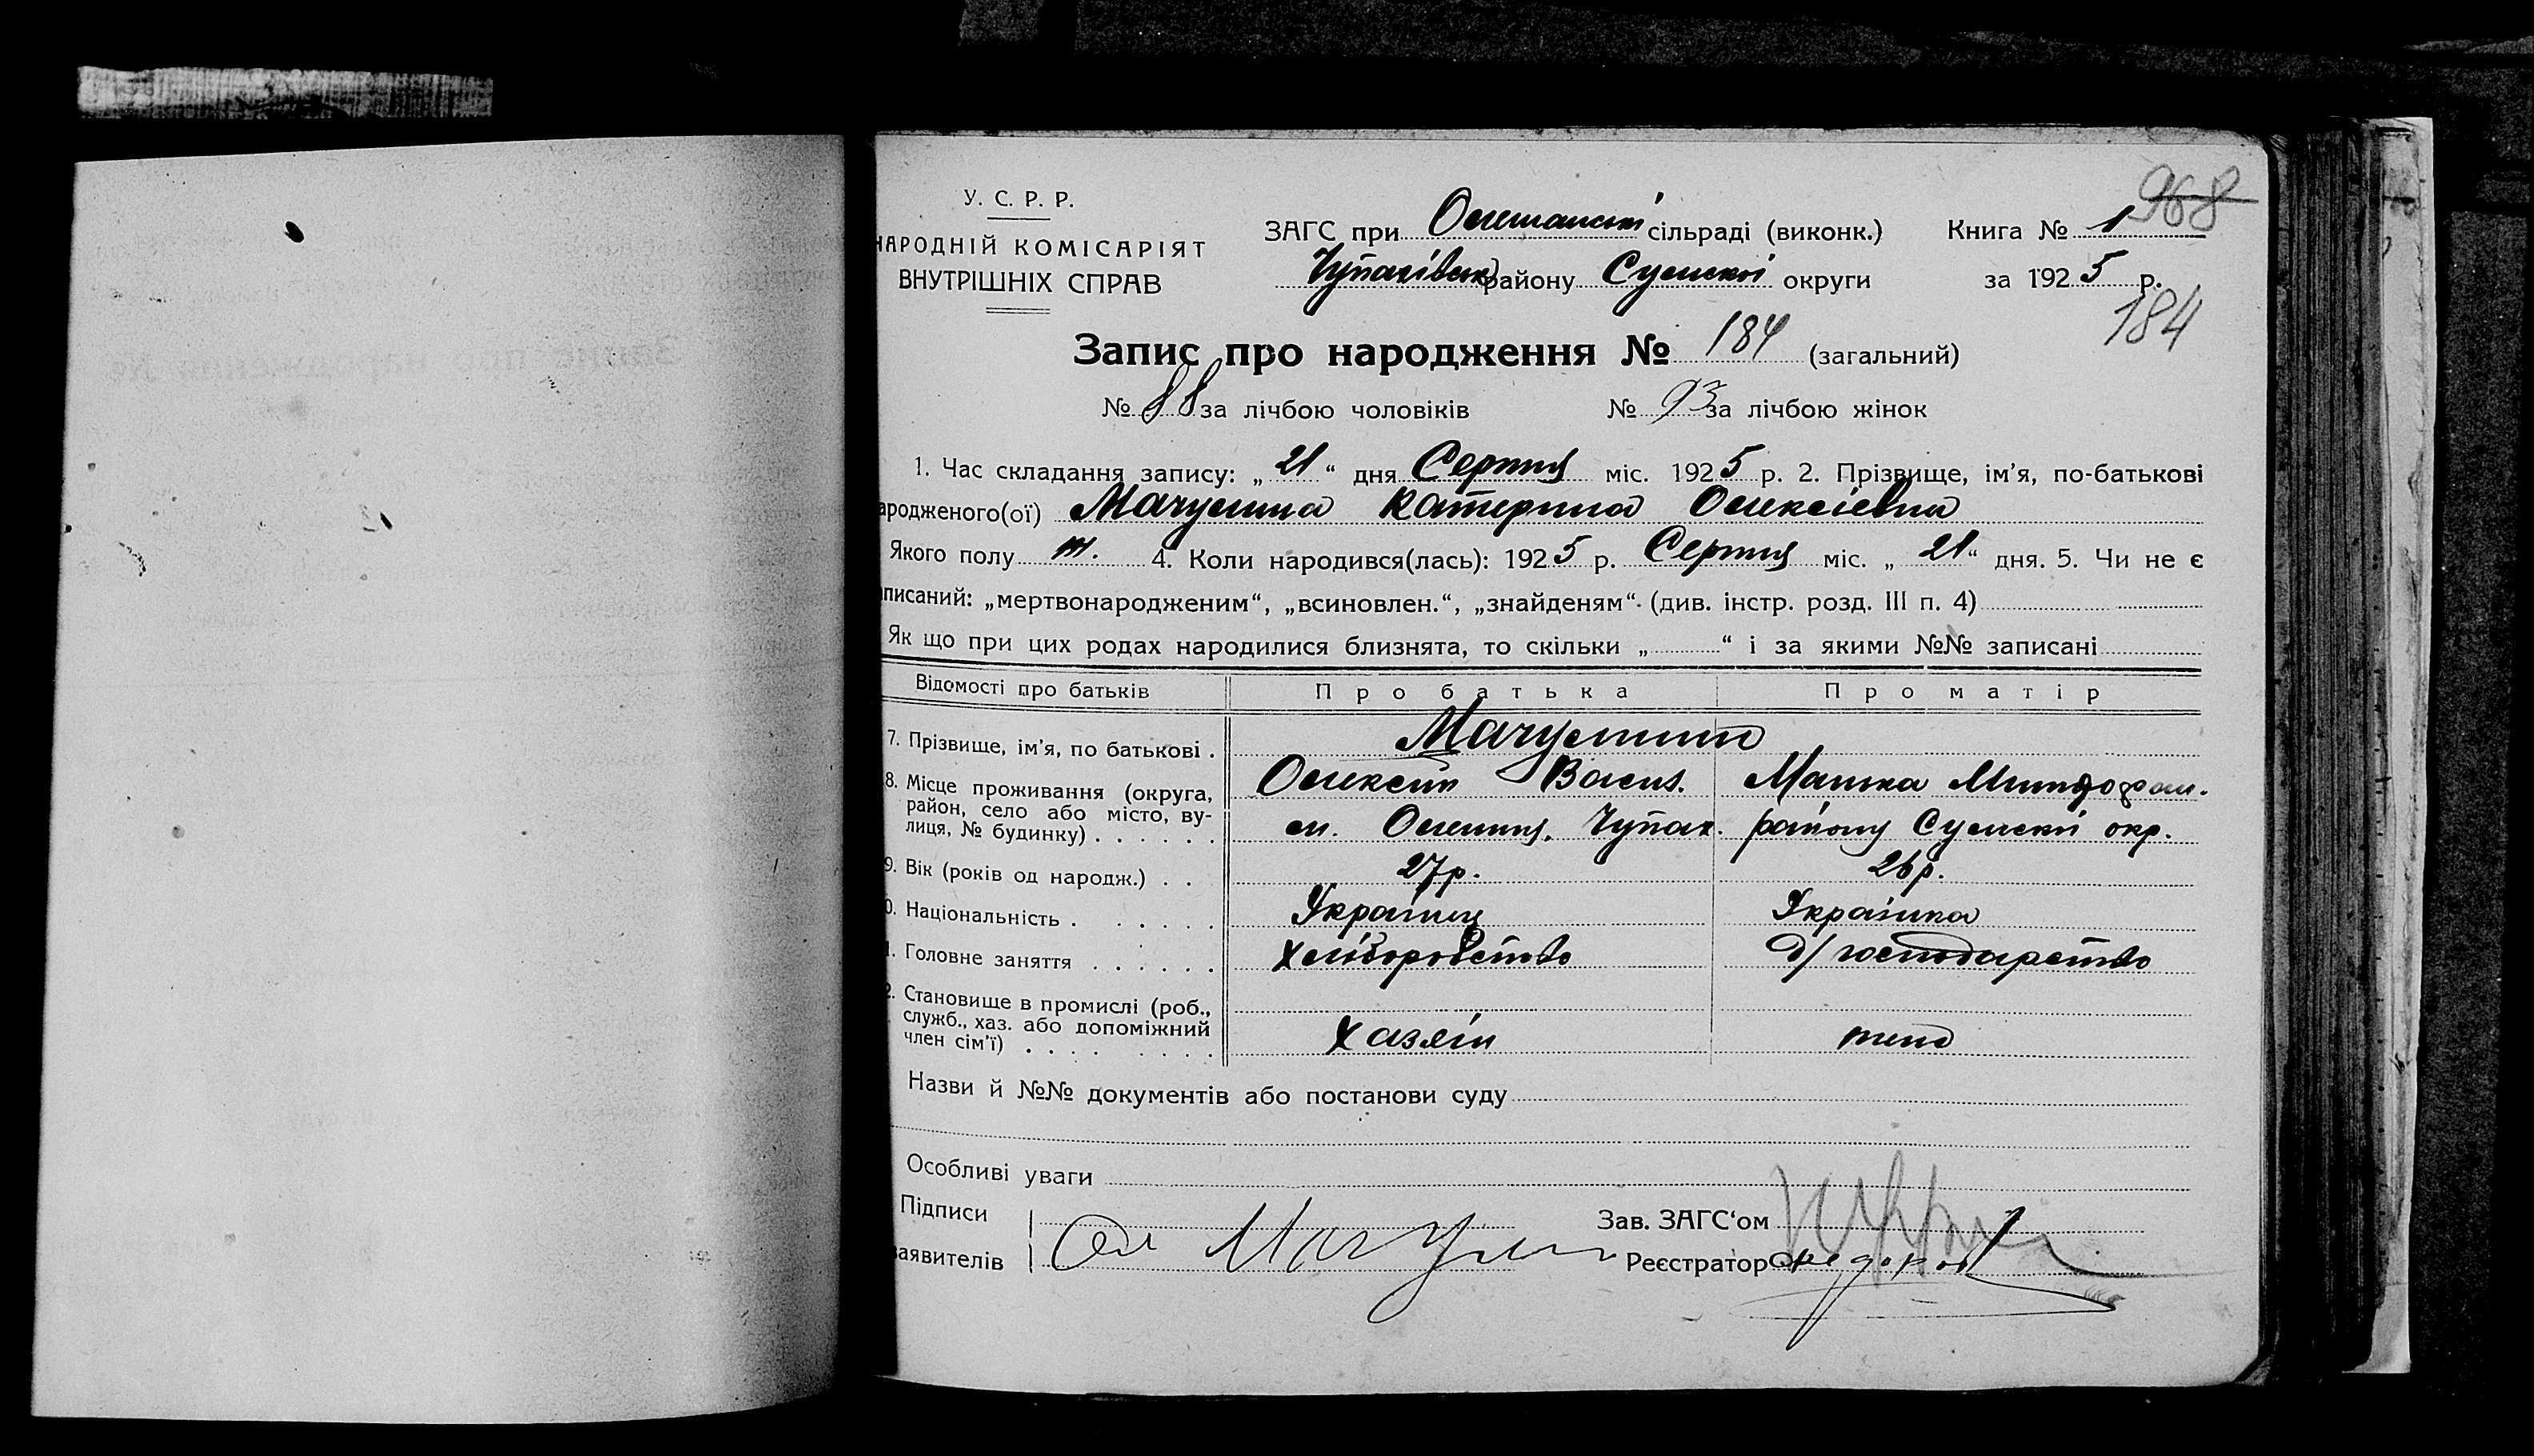 968
У. С. Р. Р.
НАРОДНІЙ КОМІСАРІЯТ
ВНУТРІШНІХ СПРАВ
ЗАГС при Олешанські сільраді (виконк.) Книга № 1
Чупахівськ району Сумської округи за 1925 р.
184
Запис про народження № 184 (загальний)
№ 88 за лічбою чоловіків № 93 за лічбою жінок
1. Час складання запису: „21“ дня Серпня міс. 1925 р. 2. Прізвище, ім’я, по-батькові
ародженого(ої) Мачулина Катерина Олексієвна
Якого полу ж. 4. Коли народився(лась): 1925 р. Серпня міс. „21“ дня. 5. Чи не є
писаний: „мертвонародженим“, „всиновлен.“, „знайденям“. (див. інстр. розд. III п. 4)
Як що при цих родах народилися близнята, то скільки „ “ і за якими №№ записані
Відомості про батьків Про батька Про матір
7. Прізвище, ім’я, по батькові . Мачулини
Олексій Васил. Манька Митрофан.
8. Місце проживання (округа, район, село або місто, вулиця, № будинку) сл. Олешня, Чупах. району Сумської окр.
9. Вік (років од народж.) 27р. 26р.
0. Національність Українец Українка
1. Головне заняття хліборобство д/господарство
2. Становище в промислі (роб., служб., хаз. або допоміжний член сім’ї) хазяїн член
Назви й №№ документів або постанови суду
Особливі уваги
Підписи Зав. ЗАГС‘ом
аявителів Ол Мачулин Реєстратор